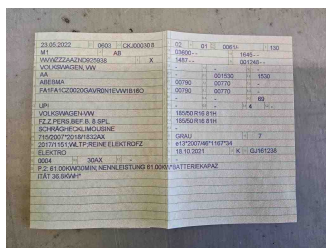 23.05.2022 0603 CKJ00030 8
M1 AB
WVWZZZAAZND925938 X
VOLKSWAGEN, VW
AA
ABE8MA
FA1FA1CZ0020GAVR0N1EVW1B16O
UP!
VOLKSWAGEN-VW
FZ.Z.PERS.BEF.B. 8 SPL.
SCHRÄGHECKLIMOUSINE
715/2007*2018/1832AX
2017/1151;WLTP;REINE ELEKTROFZ
ELEKTRO
0004 30AX -
P.2: 61.00KW30MIN; NENNLEISTUNG 61.00KW*BATTERIEKAPAZ
ITÄT 36.8KWH*
02 01 0061/- 130
03600-- 1645--
1487-- 001248--
- - -
- 001530 1530
00790 00770 -
00790 00770 -
- - 69
- - 4 -
185/50 R16 81H
185/50 R16 81H
-
GRAU 7
e13*2007/46*1167*34
18.10.2021 K GJ161236